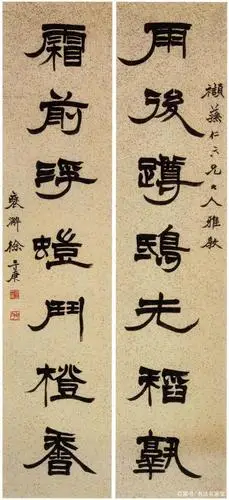 蓀仁六兄大人雅教
雨後蹲鴟先稻孰
霜前浮螘鬥橙香
褎海徐三庚